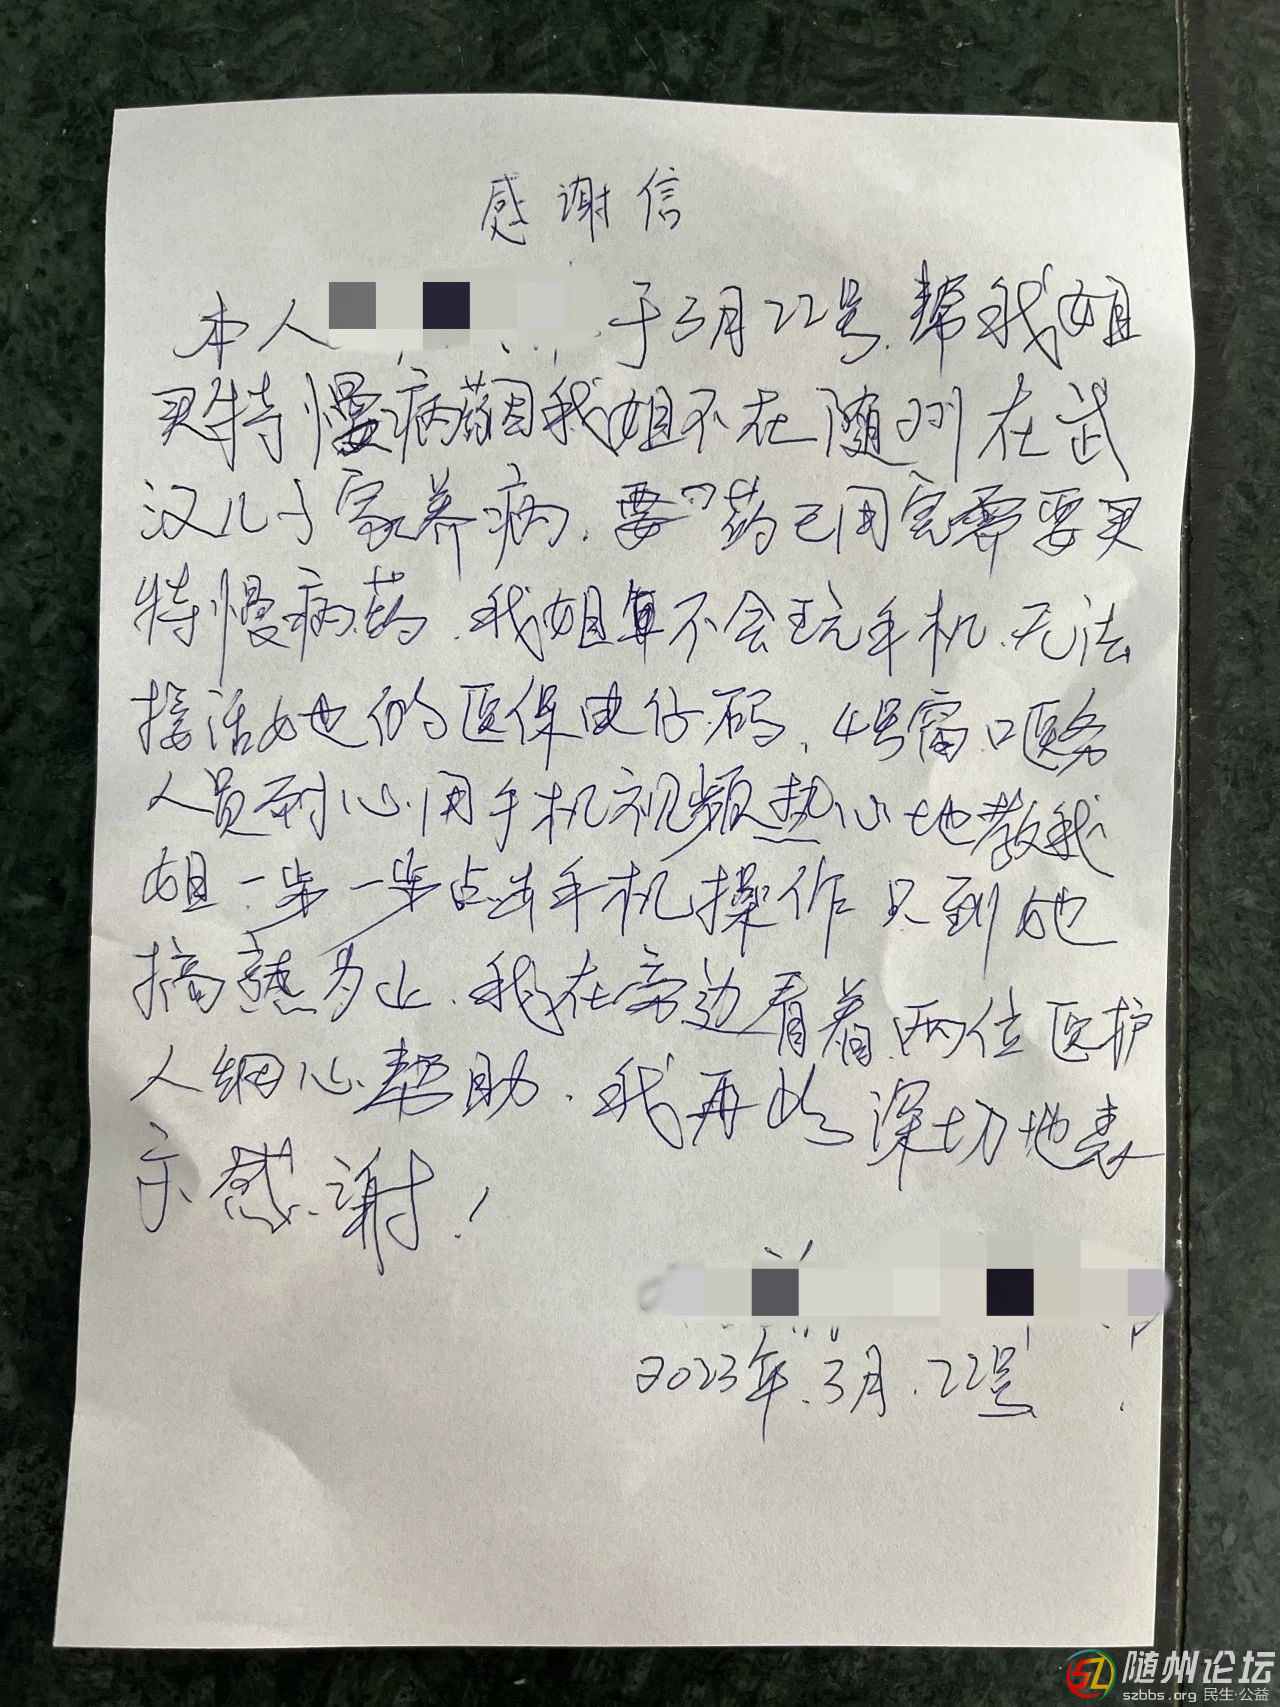 感谢信
本人 于3月22号.帮我姐
买特慢病药因我姐不在随州在武
汉儿子家养病.要药已用完需要买
特慢病药.我姐不会玩手机.无法
接活她的医保电仔码.4号窗口医务
人员耐心用手机视频热心地教我
姐一步一步点击手机操作只到她
搞熟为止.我在旁边看着两位医护
人细心帮助.我再此深切地表
示感谢!
2023年.3月.22号
随州论坛
szbbs.org 民生·公益